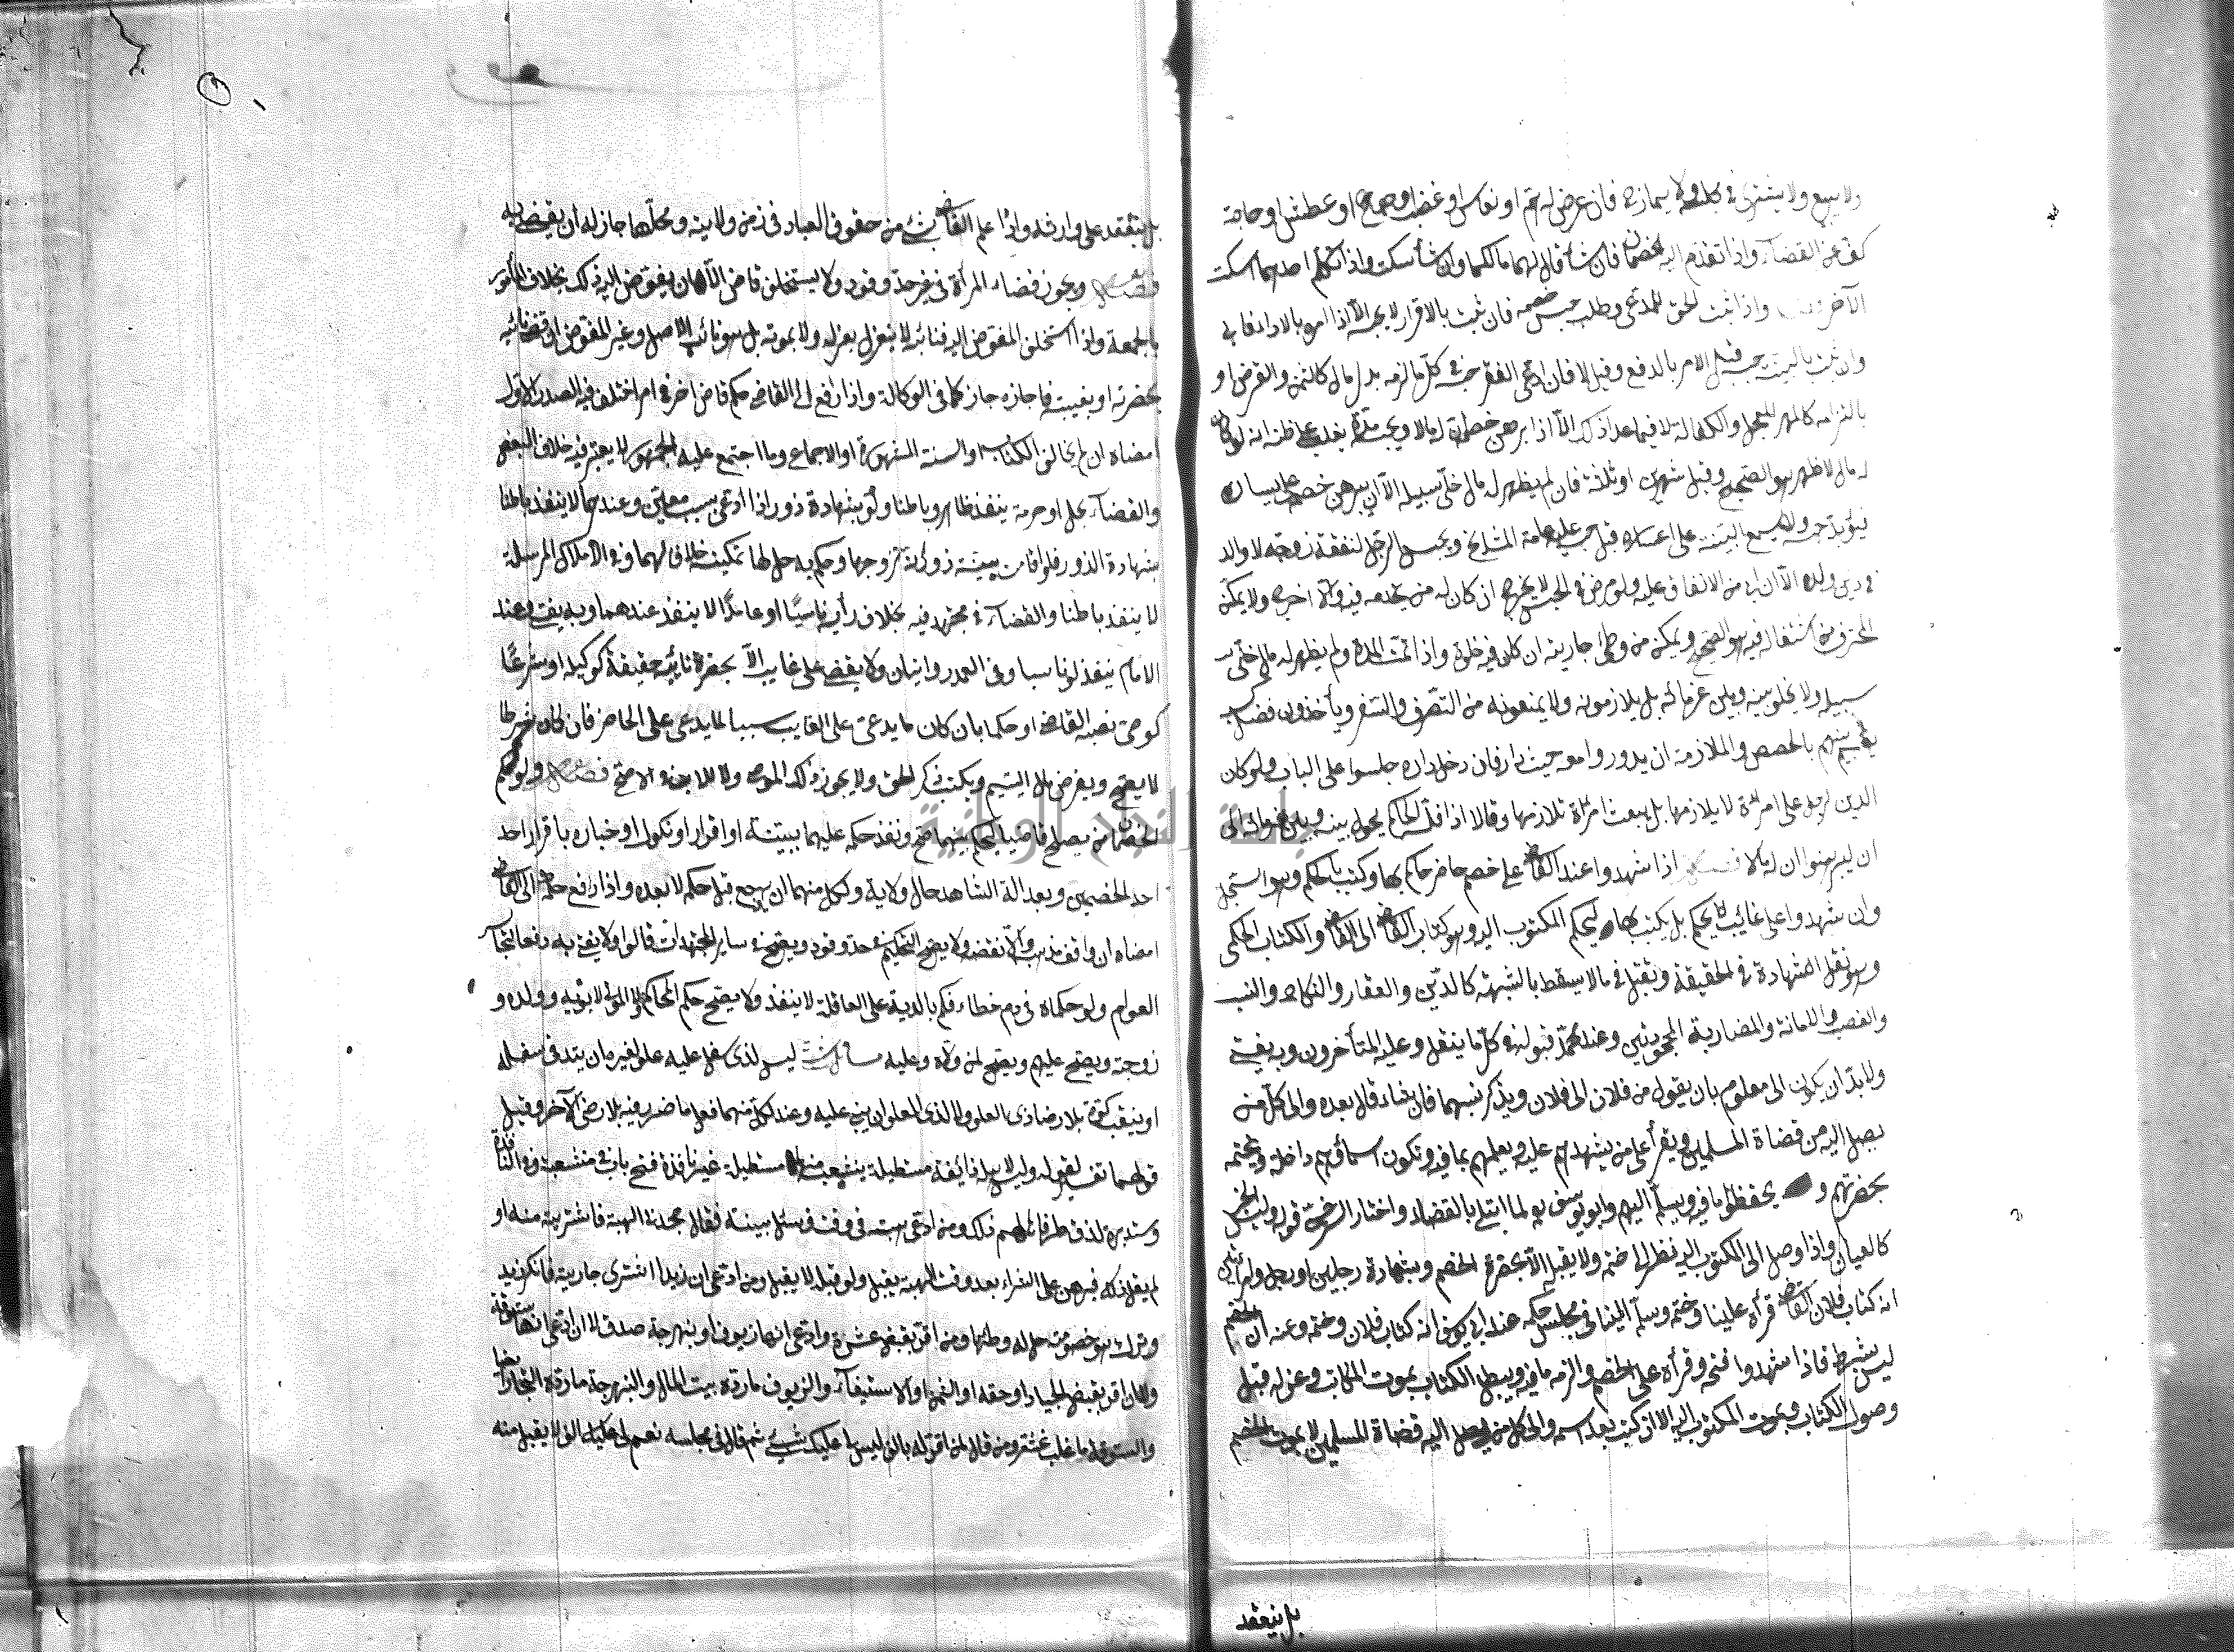 ولا يبيع ولا يشتري في مجلسه ولا يمازح فان عرض له هم او نعاس او غضب او جوع او عطش او حاجة
كف عن القضاء واذا تقدم اليه الخصمان فان شاء قال لهما مالكما وان شاء سكت واذا تكلم احدهما اسكت
الآخر واذا ثبت الحق للمدعي وطلب حبس خصمه فان ثبت بالاقرار لا يحبسه الا اذا امره بالاداء فابى
وان ثبت بالبينة حبسه قبل الامر بالدفع وقيل لا فان ادعى الفقر حبسه في كل ما لزمه بدل مال كالثمن والقرض او
بالتزامه كالمهر المعجل والكفالة لا فيما عدا ذلك الا اذا برهن خصمه ان له مالا ويحبسه مدة يغلب على ظنه انه لو كان
له مال لاظهره هو الصحيح وقيل شهرين او ثلاثة فان لم يظهر له مال خلى سبيله الا ان يبرهن خصمه على يساره
فيؤبد حبسه ولا يسمع البينة على اعساره قبل حبسه عليه عامة المشايخ ويحبس الرجل لنفقة زوجته لا والد
في دين ولده الا ان ابى من الانفاق عليه ولو مرض في الحبس لا يخرجه ان كان له من يخدمه فيه والا اخرجه ولا يمكن
المحترف من اشتغاله فيه هو الصحيح ويمكن من وطئ جاريته ان كان فيه خلوة واذا تمت المدة ولم يظهر له مال خلى
سبيله ولا يحول بينه وبين غرمائه بل يلازمونه ولا يمنعونه من التصرف والسفر ويأخذون فضل كسبه
يقسم بينهم بالحصص والملازمة ان يدوروا معه حيث دار فان دخل داره جلسوا على الباب ولو كان
الدين لرجل على امرأة لا يلازمها بل يبعث امرأة تلازمها وقالا اذا فلسه الحاكم يحول بينه وبين غرمائه الى
ان يبرهنوا ان له مالا فصل اذا شهدوا عند القاضي على خصم حاضر حكم بها وكتب بالحكم وهو السجل
وان شهدوا على غائب لا يحكم بل يكتب بها ليحكم المكتوب اليه وهو كتاب القاضي الى القاضي والكتاب الحكمي
وهو نقل الشهادة في الحقيقة وتقبل في ما لا يسقط بالشبهة كالدين والعقار والنكاح والنسب
والغصب والامانة والمضاربة المجحودتين وعند محمد قبوله في كل ما ينقل وعليه المتأخرون وبه يفتى
ولا بد ان يكون الى معلوم بان يقول من فلان الى فلان ويذكر نسبهما فان شاء قال بعده والى كل من
يصل اليه من قضاة المسلمين ويقرأ على من يشهدهم عليه ويعلمهم بما فيه وتكون اسماؤهم داخله ويختمه
بحضرتهم و يحفظوا ما فيه ويسلم اليهم وابو يوسف لما ابتلي بالقضاء واختار السرخسي قوله وليس الخبر
كالعيان واذا وصل الى المكتوب اليه نظر الى ختمه ولا يقبله الا بحضرة الخصم وبشهادة رجلين او رجل وامرأتين
انه كتاب فلان القاضي قرأه علينا وختمه وسلمه الينا في مجلس حكمه عند ابي يوسف انه كتاب فلان وختمه وعنه ان الختم
ليس بشرط فاذا شهدوا فتحه وقرأه على الخصم والزمه ما فيه ويبطل الكتاب بموت الكاتب وعزله قبل
وصول الكتاب وبموت المكتوب اليه الا ان كتب بعد اسمه والى كل من يصل اليه قضاة المسلمين لا بموت الخصم
بل ينعقد
بل ينفذ على وارثه واذا علم القاضي بشئ من حقوق العباد في زمن ولايته ومحلها جاز له ان يقضي به
فصل ويجوز قضاء المرأة في غير حد وقود ولا يستخلف قاض الا ان يفوض اليه ذلك بخلاف المأمور
بالجمعة واذا استخلف المفوض اليه فنائبه لا ينعزل بعزله ولا بموته بل هو نائب الاصل وغير المفوض ان قضى نائبه
بحضرته او بغيبته فاجازه جاز كما في الوكالة واذا رفع الى القاضي حكم قاض اخر في امر اختلف فيه الصدر الاول
امضاه ان لم يخالف الكتاب او السنة المشهورة او الاجماع وما اجتمع عليه الجمهور لا يعتبر فيه خلاف البعض
والقضاء بحل او حرمة ينفذ ظاهرا وباطنا ولو بشهادة زور اذا ادعى بسبب معين وعندهما لا ينفذ باطنا
بشهادة الزور فلو اقامت بينة زور انه تزوجها وحكم به حل لها تمكينه خلافا لهما وفي الاملاك المرسلة
لا ينفذ باطنا والقضاء في مجتهد فيه بخلاف رأيه ناسيا او عامدا لا ينفذ عندهما وبه يفتى وعند
الامام ينفذ لو ناسيا وفي العمد روايتان ولا يقضى على غايب الا بحضرة نائبه حقيقة كوكيله او شرعا
كوصي نصبه القاضي او حكما بان كان ما يدعى على الغايب سببا لما يدعى على الحاضر فان كان شرطا
لا يصح ويقرض مال اليتيم ويكتب ذكر الحق ولا يجوز ذلك للوصي ولا للاب في الاصح فصل ولو حكم
الخصمان من يصلح قاضيا ليحكم بينهما صح ونفذ حكمه عليهما ببينة او اقرار او نكول او خباره باقرار احد
احد الخصمين وبعدالة الشاهد حال ولايته ولكل منهما ان يرجع قبل حكمه لا بعده واذا رفع حكمه الى القاضي
امضاه ان وافق مذهبه والا نقضه ولا يصح التحكيم في حد وقود ويصح في ساير المجتهدات قالوا ولا يفتى به دفعا لتجاسر
العوام ولو حكماه في دم خطاء فحكم بالدية على العاقلة لا ينفذ ولا يصح حكم الحاكم والمولى لابويه وولده و
زوجته ويصح عليهم ويصح لمن ولاه وعليه مسائل شتى ليس لذي سفل عليه علو لغيره ان يتد في سفله
او ينقب كوة بلا رضا ذي العلو ولا لذي العلو ان يبني عليه وعندهما لكل منهما فعل ما ضرر فيه بلا رضى الآخر وقيل
قولهما تفسير لقوله وليس لاهل زائغة مستطيلة ينشعب منها مستطيلة غير نافذة فتح باب في منشعبة وفي النافذة
ومستديرة لزق طرفاها لهم ذلك ومن ادعى هبة في وقت فسئل بينة فقال جحدني الهبة فاشتريته منه او
لم يقل ذلك فبرهن على الشراء بعد وقت الهبة يقبل ولو قبله لا يقبل ومن ادعى ان زيدا اشترى جاريته فانكر زيد
وترك هو خصومته حل له وطئها ومن اقر بقبض عشرة وادعى انها زيوف او بنهرجة صدق لا ان ادعى انها ستوقة
ولا ان اقر بقبض الجياد او حقه او الثمن او الاستيفاء والزيوف ما رده بيت المال والبنهرجة ما رده التجار ايضا
والستوقة ما غلب غشه ومن قال لمن اقر له بالف ليس لي عليك شيئ ثم قال في مجلسه نعم لي عليك الف لا يقبل منه
جامعة النجاح الوطنية